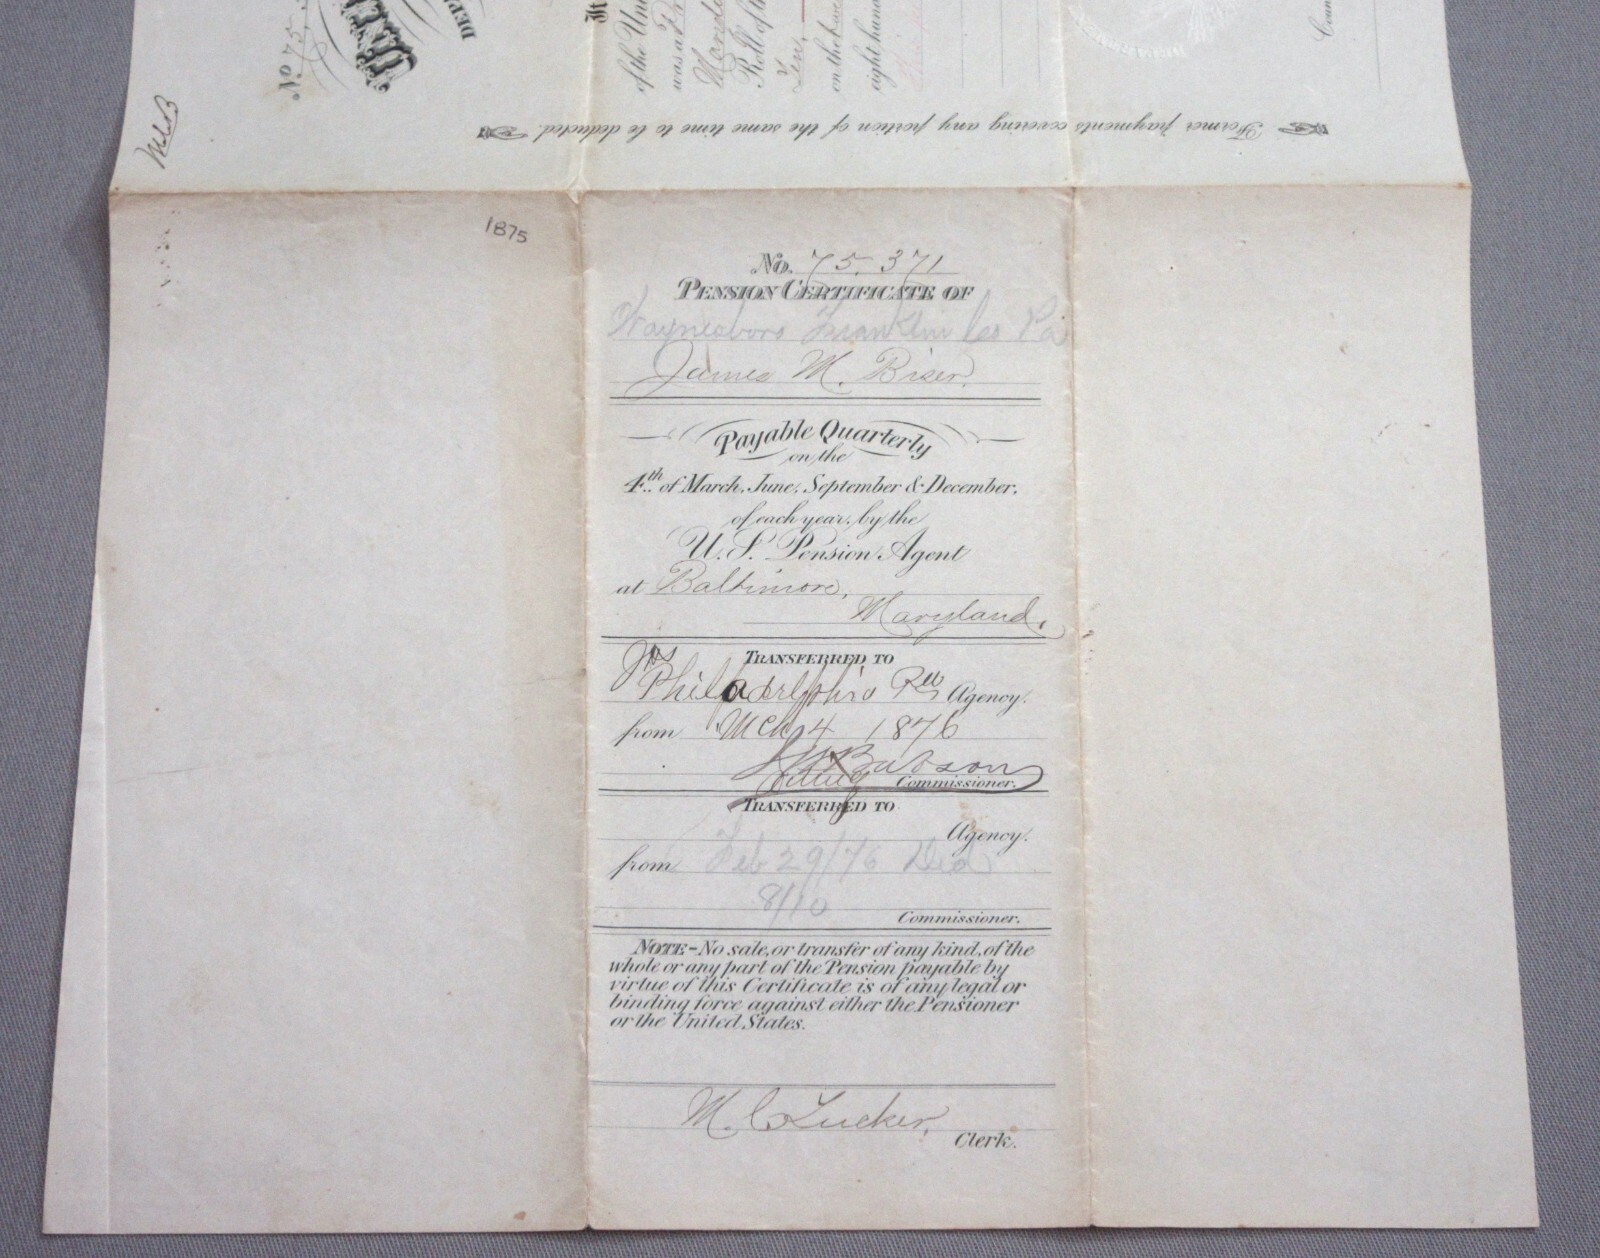 No. 75
of the Uni
was a Pr
Roll of t
Ten
on the
eight hund
Former payments covering any portion of the same time to be deducted.
1875
No. 75.371
PENSION CERTIFICATE OF
Waynesboro Franklin Co Pa
James M. Biser.
Payable Quarterly
on the
4th of March, June, September & December,
of each year, by the
U.S. Pension Agent
at Baltimore,
Maryland.
TRANSFERRED TO
Philadelphia Agency.
from Mch 4 1876
Commissioner.
TRANSFERRED TO
Agency.
from Feb 29/76 Died
8/10
Commissioner.
NOTE - No sale, or transfer of any kind, of the
whole or any part of the Pension payable by
virtue of this Certificate is of any legal or
binding force against either the Pensioner
or the United States.
M. C. Tucker,
Clerk.